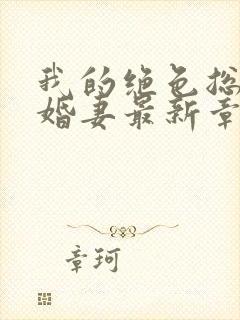 我的绝色总
婚妻最新章
章珂